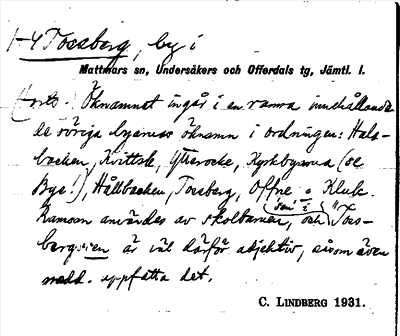 1-4 Tossberg, by i
Mattmars sn, Undersåkers och Offerdals tg, Jämtl. l.
(Forts. Öknamnet ingår i en ramsa innehållande
de övriga byarnas öknamn i ordningen: Hals-
backen, Kvittsle, Ytterocke, Kyrkbyarna (se
Byge!), Hållbacken, Tossberg, Offne o Kluk.
Ramsan användes av skolbarnen, och "Toss-
bergseien är väl därför adjektiv, såsom även
medd. uppfatta det.
C. LINDBERG 1931.